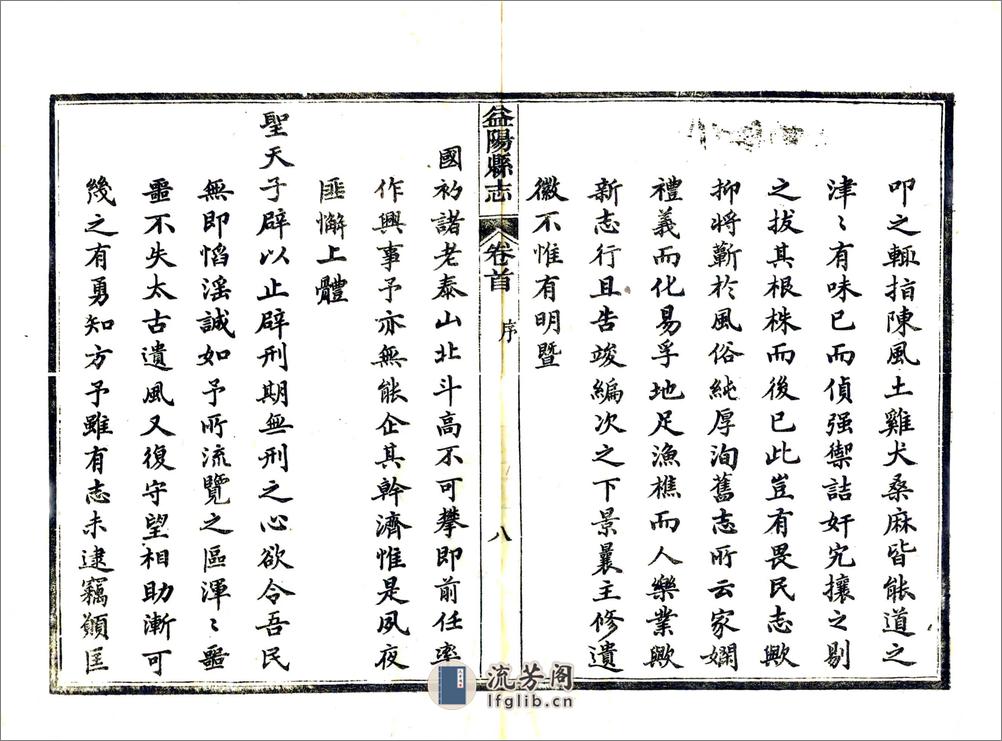 叩之輒指陳風土雞犬桑麻皆能道之
津〻有味已而偵强禦詰奸宄攘之剔
之拔其根株而後已此豈有畏民志歟
抑將蘄於風俗純厚洵舊志所云家嫻
禮義而化易孚地足漁樵而人樂業歟
新志行且告竣編次之下景曩主修遺
徽不惟有明暨
益陽縣志
卷首
序
八
國初諸老泰山北斗高不可攀即前任率
作興事予亦無能企其幹濟惟是夙夜
匪懈上體
聖天子辟以止辟刑期無刑之心欲令吾民
無即慆滛誠如予所流覽之區渾〻噩
噩不失太古遺風又復守望相助漸可
幾之有勇知方予雖有志未逮竊願匡
流芳阁
lfglib.cn